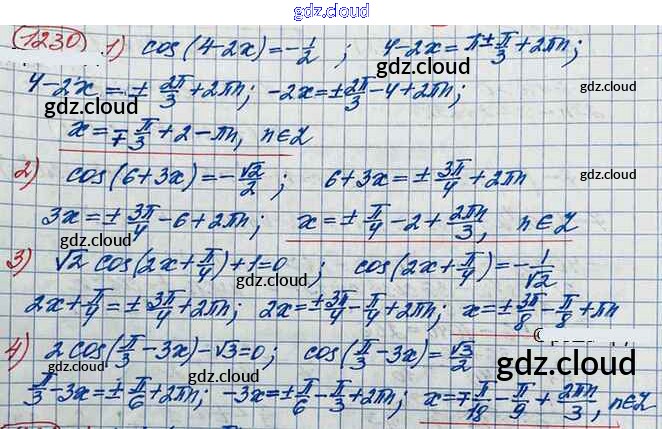 gdz.cloud
1230 1) cos(4-2x)=-1/2 ; 4-2x=π±π/3+2πn;
4-2x=±2π/3+2πn; -2x=±2π/3-4+2πn;
gdz.cloud
gdz.cloud
x=∓π/3+2-πn, n∈Z
gdz.cloud
2) cos(6+3x)=-√2/2 ; 6+3x=±3π/4+2πn
gdz.cloud
3x=±3π/4-6+2πn; x=±π/4-2+2πn/3, n∈Z
gdz.cloud
3) √2 cos(2x+π/4)+1=0 ; cos(2x+π/4)=-1/√2
gdz.cloud
2x+π/4=±3π/4+2πn; 2x=±3π/4-π/4+2πn; x=±3π/8-π/8+πn
gdz.cloud
4) 2cos(π/3-3x)-√3=0; cos(π/3-3x)=√3/2
gdz.cloud
gdz.cloud
π/3-3x=±π/6+2πn; -3x=±π/6-π/3+2πn; x=∓π/18-π/9+2πn/3, n∈Z
gdz.cloud